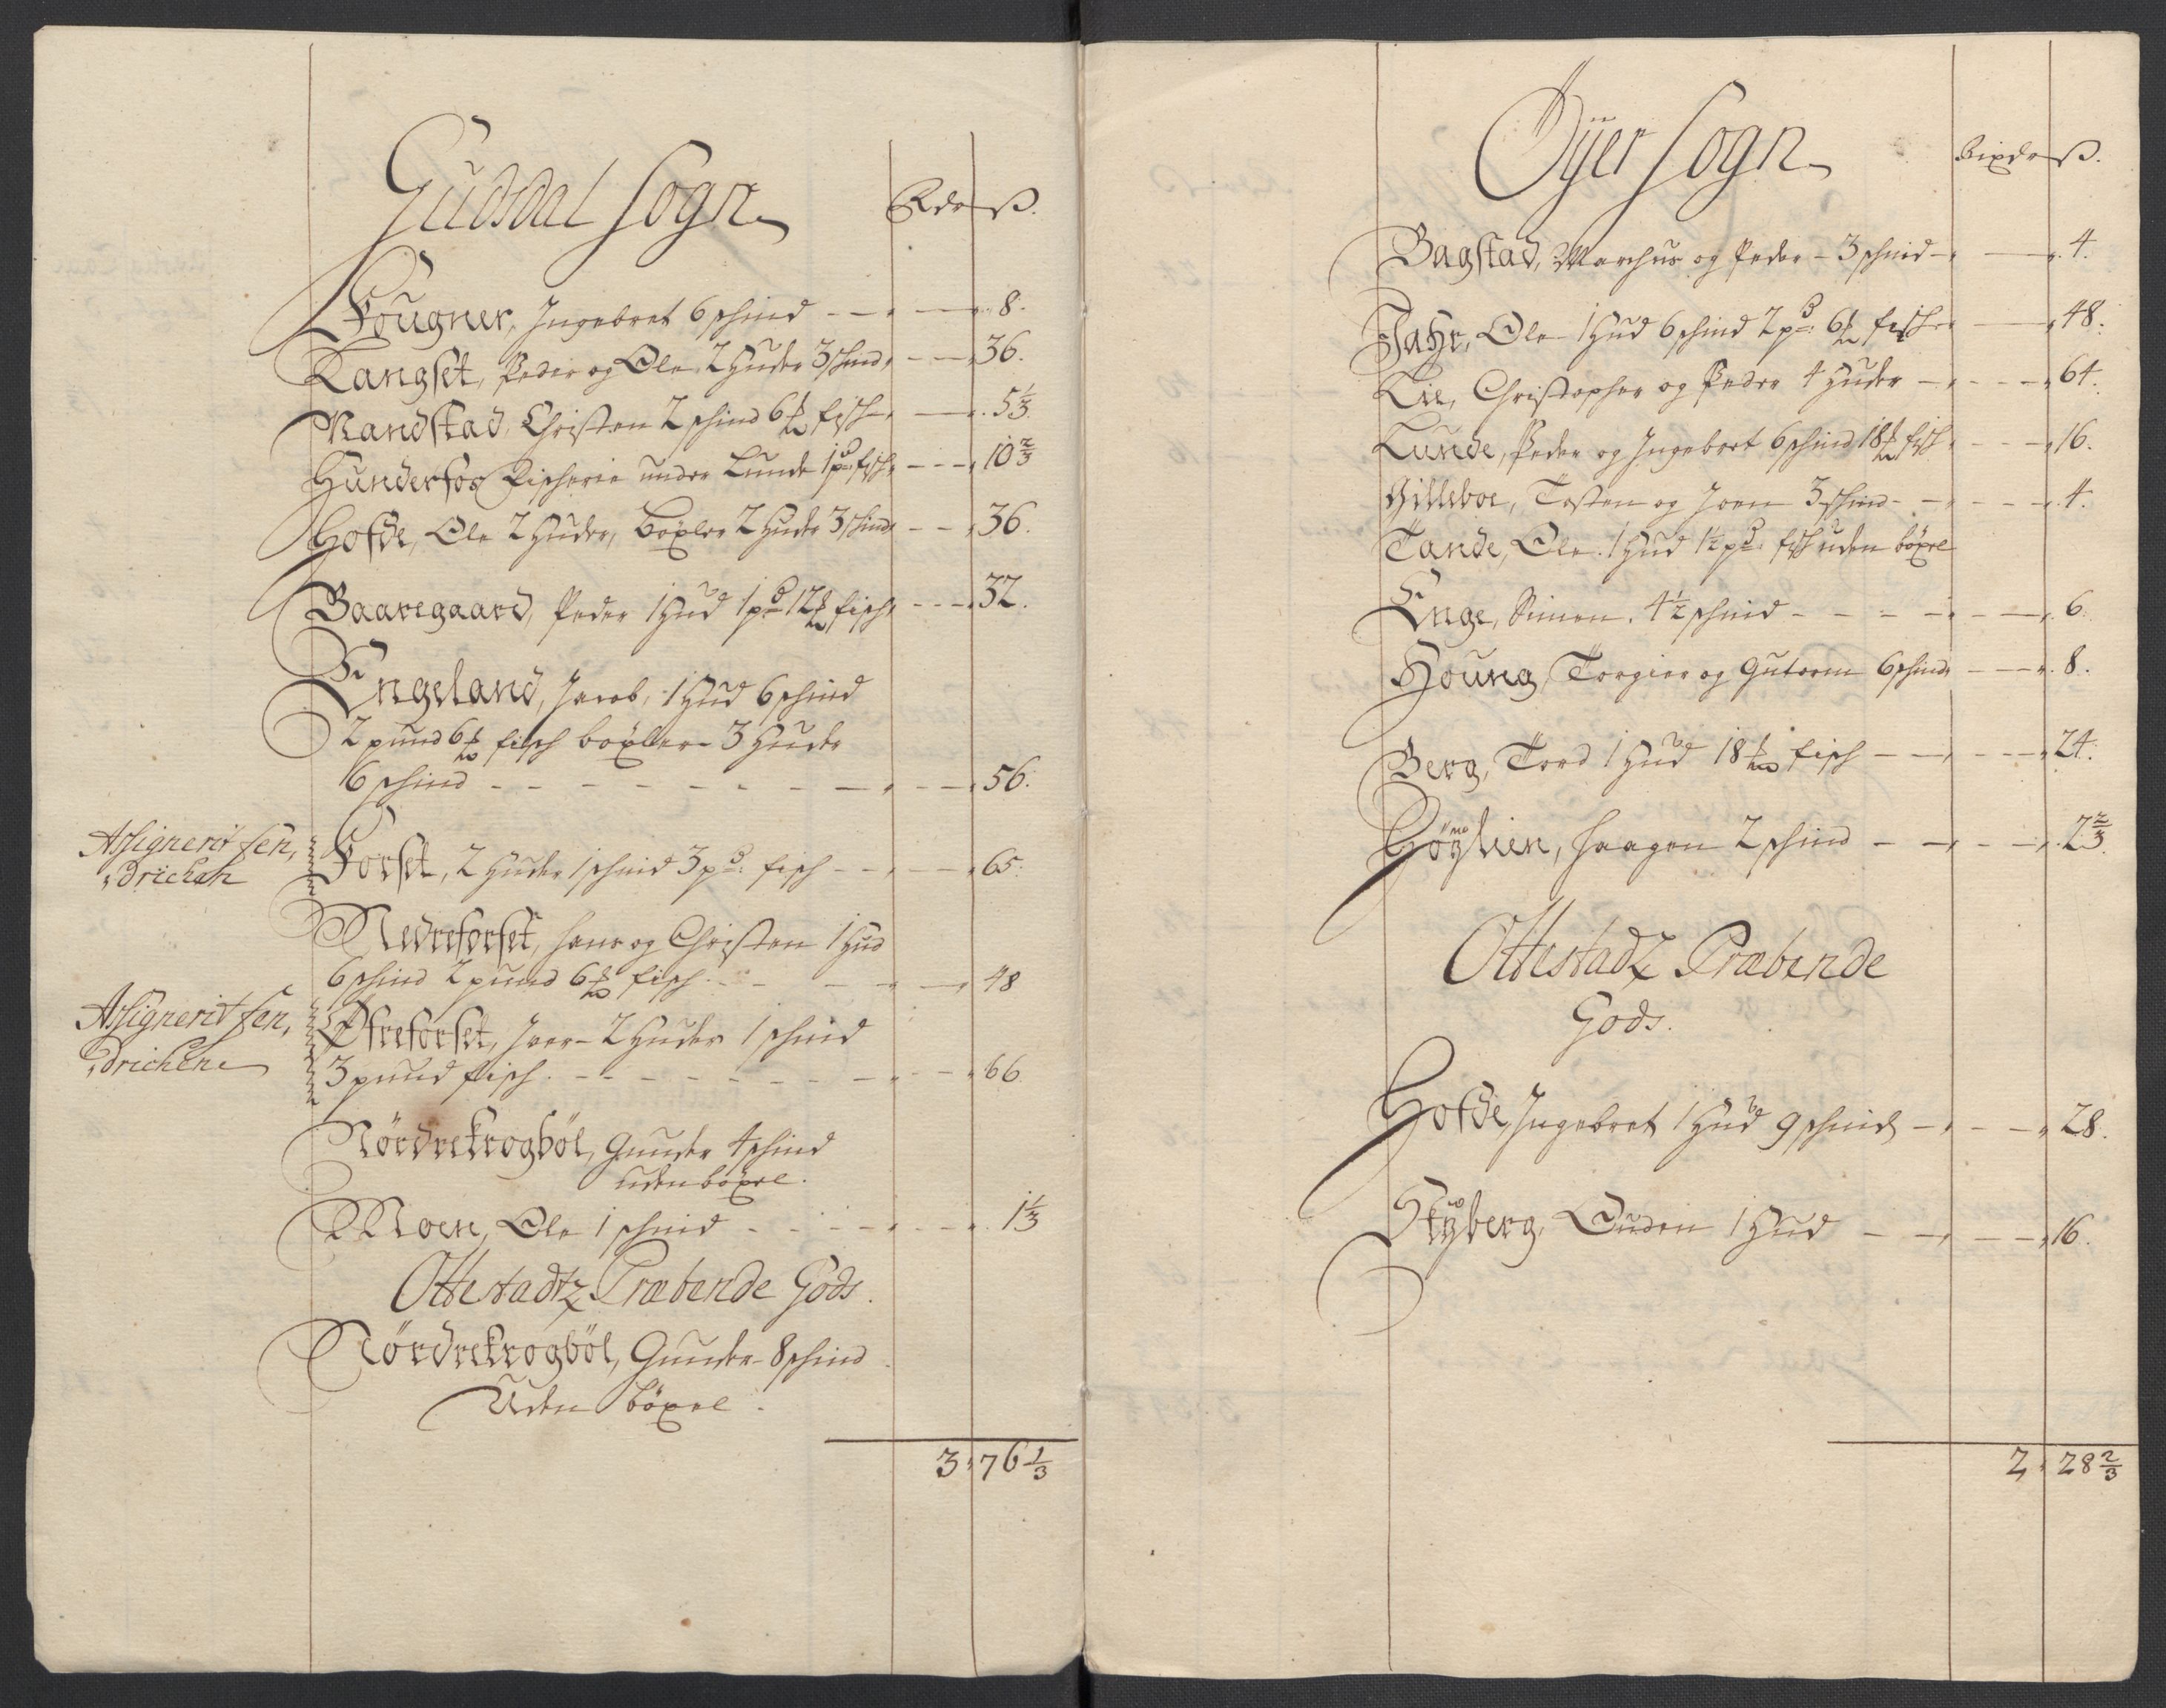 Gudsdal Sogn
Rdr ß.
Fougner, Ingebret 6 schind - - - 8.
Langset, Peder og Ole 2 Huder 3 schind - - - 36.
Randstad, Christen 2 schind 6 ℔ fisch - - 5 1/3.
Hunderfos Fischerie under Lunde 1 pd: fisch - - - 10 2/3
Hofde, Ole 2 Huder, boxler 2 Huder 3 schind - - - 36.
Baaregaard, Peder 1 Hud 1 pd 12 ℔ fisch - - - 32.
Engeland, Jacob, 1 Hud 6 schind
2 pund 6 ℔ fisch boxler 3 Huder
6 schind - - - - - - - - - 56.
Assignerit fen,
drichen
Forset, 2 Huder 1 schind 3 pd: fisch - - - 65.
Nedreforset, Hans og Christen 1 Hud
6 schind 2 pund 6 ℔ fisch - - - - 48
Assignerit fen,
drichene
Øfreforset, Iver 2 Huder 1 schind
3 pund fisch - - - - - - - - 66
Nördrekrogböl, Gunder 4 schind
uden böxel.
Moen, Ole 1 schind - - - - - 1 1/3
Ottestadtz Præbende Gods.
Nördrekrogböl, Gunder 8 schind
Uden böxel.
3. 76 1/3
Öÿer Sogn
Rixdr ß.
Bagstad, Marchus og Peder - 3 schind - - 4.
Jahr, Ole 1 Hud 6 schind 2 pd: 6 ℔ fisch - - 48.
Lie, Christopher og Peder 4 Huder - - - - 64.
Lunde, Peder og Ingebret 6 schind 18 ℔ fisch - - - 16.
Gilleboe, Tosten og Joen 3 schind - - - - 4.
Tande, Ole 1 Hud 1 1/2 pd: fisch uden böxel
Enge, Simen. 4 1/2 schind - - - - - 6.
Houng, Torgier og Gutorm 6 schind - - - 8.
Berg, Tord 1 Hud 18 ℔ fisch - - - - 24.
Höÿlien, Haagen 2 schind - - - - 2 2/3.
Ottestadz Præbende
Gods.
Hofde, Ingebret 1 Hud 9 schind - - - 28.
Skÿberg, Ouden 1 Hud - - - - 16.
2. 28 2/3